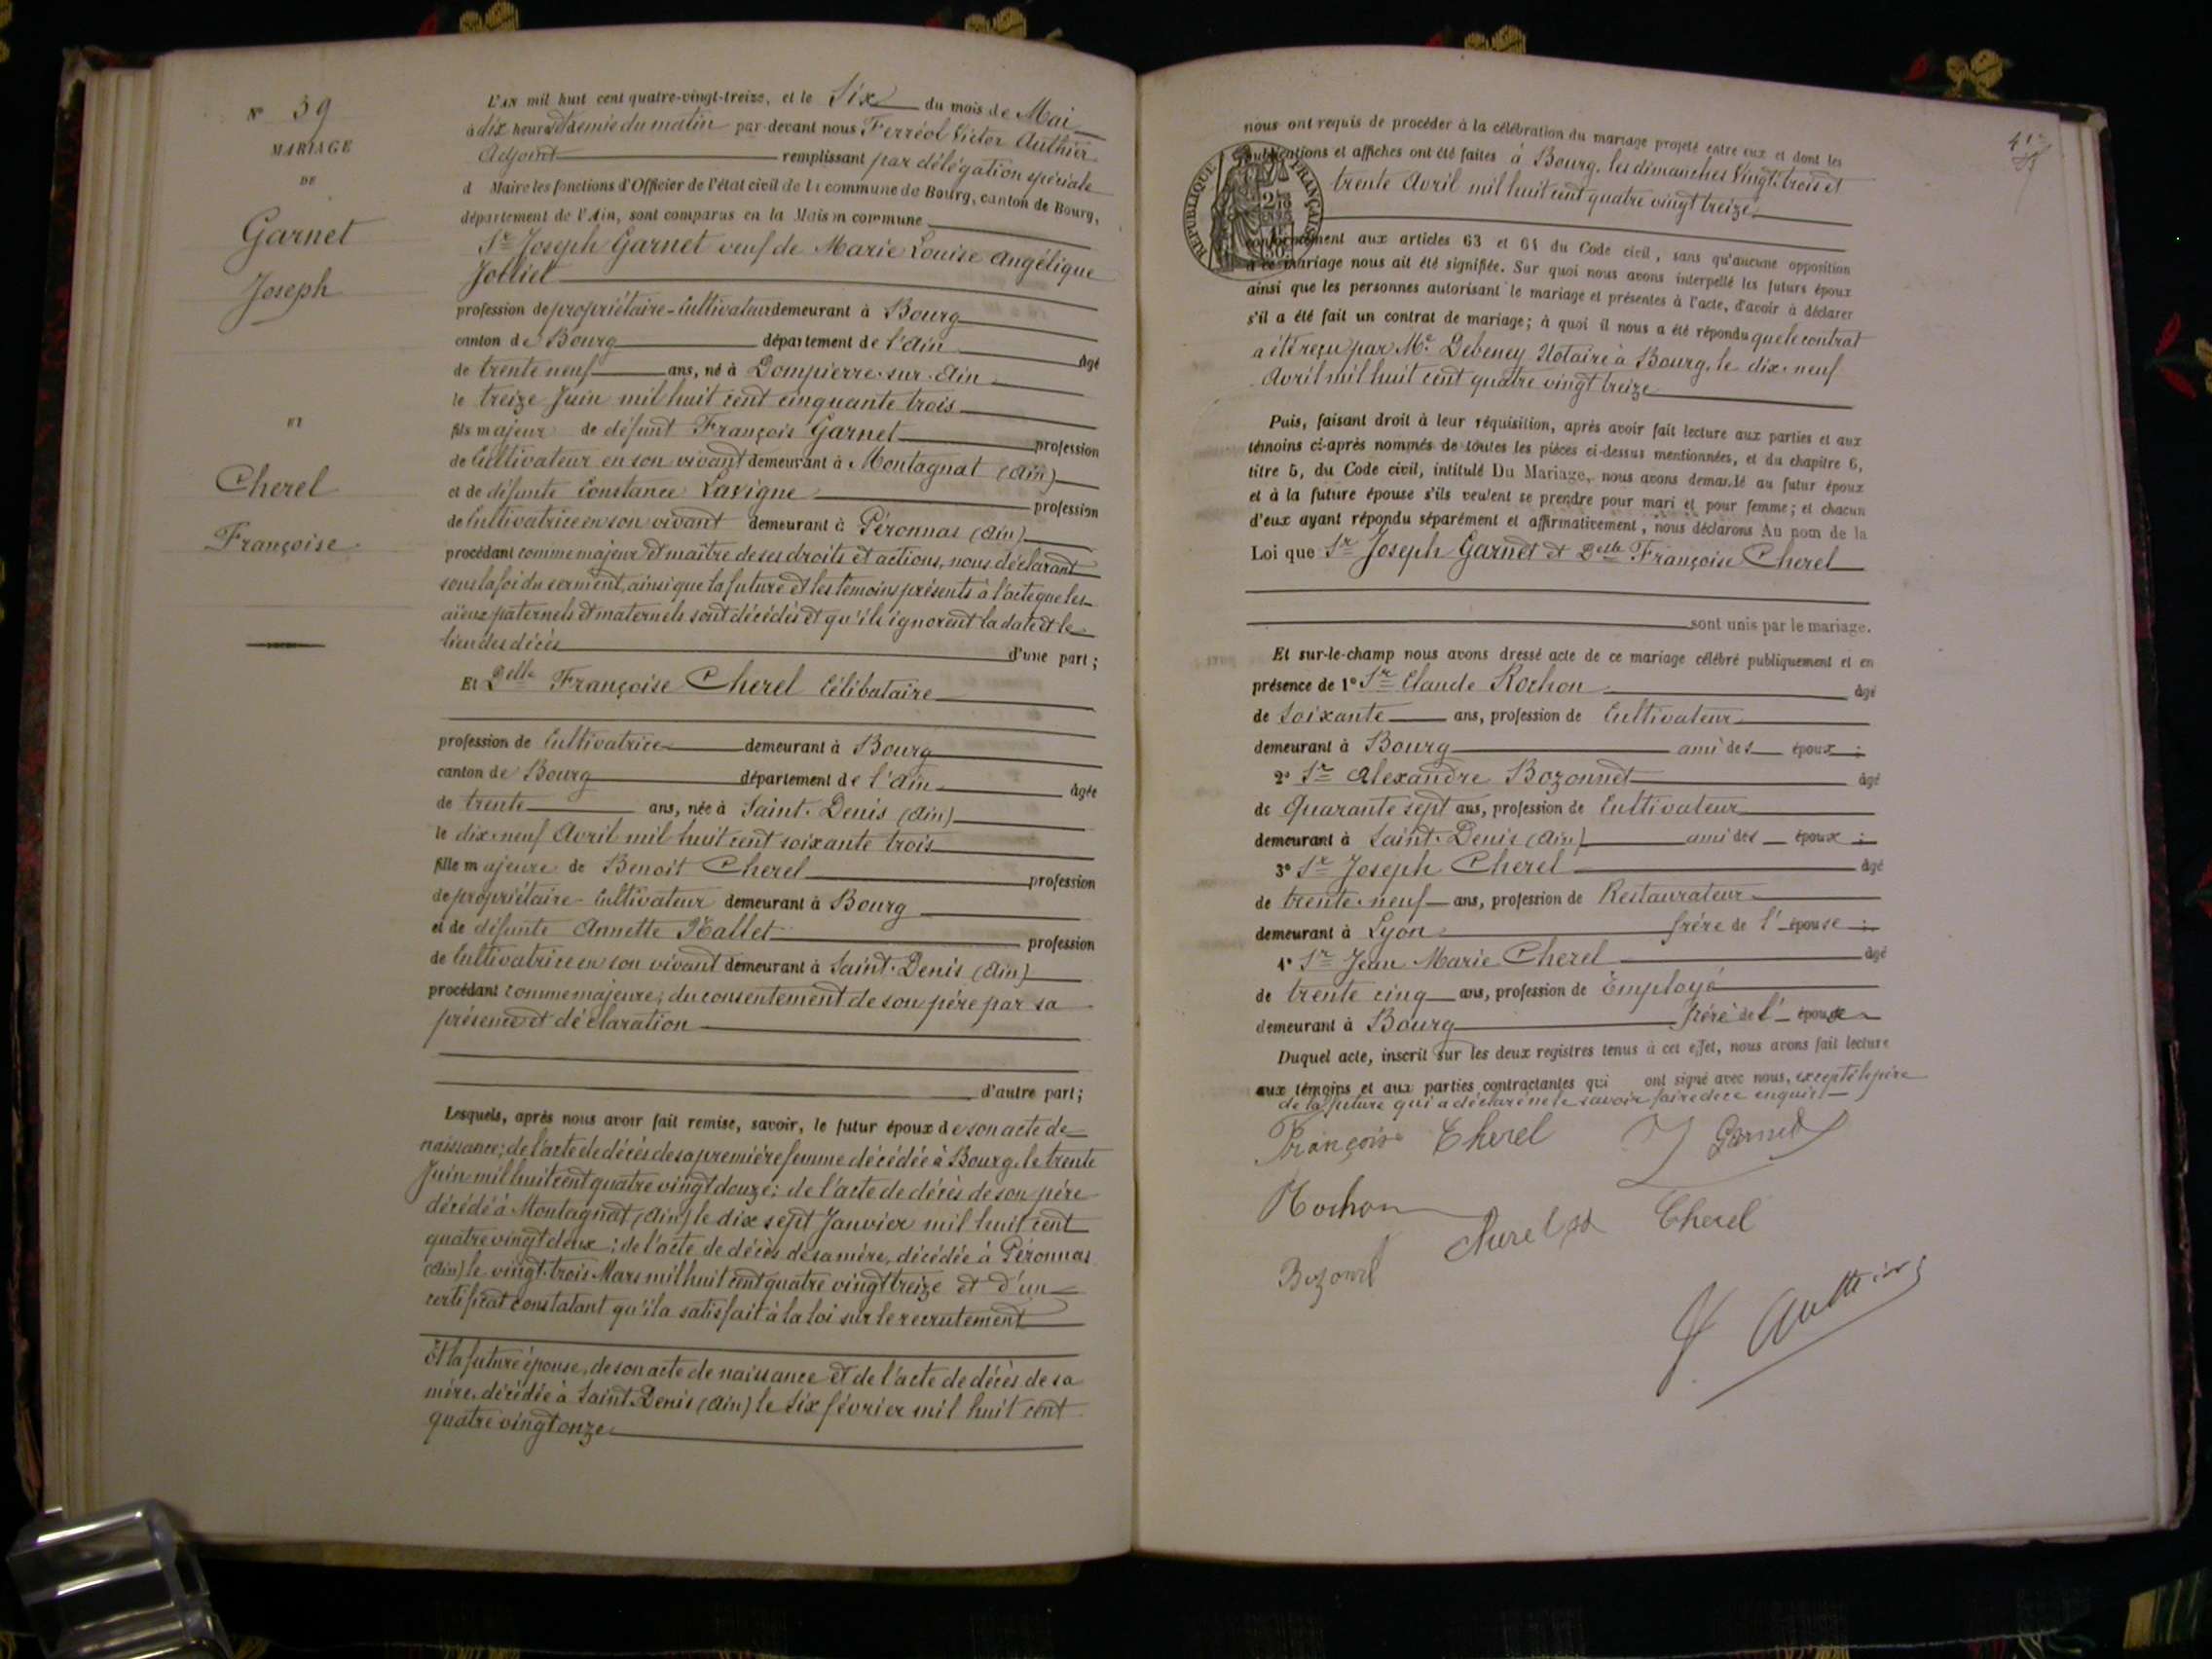 N° 39
MARIAGE
DE
Garnet
Joseph
ET
Cherel
Françoise
L'AN mil huit cent quatre-vingt-treize, et le Six du mois de Mai
à dix heures et demie du matin par-devant nous Ferréol Victor Authier
Adjoint remplissant par délégation spéciale
d Maire les fonctions d'Officier de l'état civil de la commune de Bourg, canton de Bourg,
département de l'Ain, sont comparus en la Maison commune
Sr Joseph Garnet veuf de Marie Louise Angélique
Jolliet
profession de propriétaire-Cultivateur demeurant à Bourg
canton de Bourg département de l'Ain âgé
de trente neuf ans, né à Dompierre-sur-Ain
le treize Juin mil huit cent cinquante trois
fils majeur de défunt François Garnet profession
de Cultivateur en son vivant demeurant à Montagnat (Ain)
et de défunte Constance Lavigne profession
de Cultivatrice en son vivant demeurant à Péronnas (Ain)
procédant comme majeur et maître de ses droits et actions, nous déclarant
sous la foi du serment, ainsi que la future et les témoins présents à l'acte que les
aïeux paternels et maternels sont décédés et qu'ils ignorent la date et le
lieu des décès d'une part;
Et Delle Françoise Cherel Célibataire
profession de Cultivatrice demeurant à Bourg
canton de Bourg département de l'Ain âgée
de trente ans, née à Saint-Denis (Ain)
le dix-neuf Avril mil huit cent soixante trois
fille majeure de Benoit Cherel profession
de propriétaire-Cultivateur demeurant à Bourg
et de défunte Annette Hallet profession
de Cultivatrice en son vivant demeurant à Saint-Denis (Ain)
procédant comme majeure, du consentement de son père par sa
présence et déclaration
d'autre part;
Lesquels, après nous avoir fait remise, savoir, le futur époux de son acte de
naissance; de l'acte de décès de sa première femme décédée à Bourg, le trente
Juin mil huit cent quatre vingt douze; de l'acte de décès de son père
décédé à Montagnat (Ain) le dix sept Janvier mil huit cent
quatre vingt deux; de l'acte de décès de sa mère, décédée à Péronnas
(Ain) le vingt-trois Mars mil huit cent quatre vingt treize et d'un
certificat constatant qu'il a satisfait à la loi sur le recrutement
Et la future épouse, de son acte de naissance et de l'acte de décès de sa
mère, décédée à Saint-Denis (Ain) le Six février mil huit cent
quatre vingt onze
nous ont requis de procéder à la célébration du mariage projeté entre eux et dont les
publications et affiches ont été faites à Bourg, les dimanches Vingt-trois et
trente Avril mil huit cent quatre vingt treize
REPUBLIQUE FRANÇAISE
conformément aux articles 63 et 64 du Code civil, sans qu'aucune opposition
à ce mariage nous ait été signifiée. Sur quoi nous avons interpellé les futurs époux
ainsi que les personnes autorisant le mariage et présentes à l'acte, d'avoir à déclarer
s'il a été fait un contrat de mariage; à quoi il nous a été répondu que le contrat
a été reçu par Me Debeney Notaire à Bourg, le dix-neuf
Avril mil huit cent quatre vingt treize
Puis, faisant droit à leur réquisition, après avoir fait lecture aux parties et aux
témoins ci-après nommés de toutes les pièces ci-dessus mentionnées, et du chapitre 6,
titre 5, du Code civil, intitulé Du Mariage, nous avons demandé au futur époux
et à la future épouse s'ils veulent se prendre pour mari et pour femme; et chacun
d'eux ayant répondu séparément et affirmativement, nous déclarons Au nom de la
Loi que Sr Joseph Garnet et Delle Françoise Cherel
sont unis par le mariage.
Et sur-le-champ nous avons dressé acte de ce mariage célébré publiquement et en
présence de 1° Sr Claude Rochon âgé
de Soixante ans, profession de Cultivateur
demeurant à Bourg ami des époux;
2° Sr Alexandre Bozonnet âgé
de Quarante sept ans, profession de Cultivateur
demeurant à Saint-Denis (Ain) ami des époux;
3° Sr Joseph Cherel âgé
de trente-neuf ans, profession de Restaurateur
demeurant à Lyon frère de l'épouse;
4° Sr Jean Marie Cherel âgé
de trente cinq ans, profession de Employé
demeurant à Bourg frère de l'épouse
Duquel acte, inscrit sur les deux registres tenus à cet effet, nous avons fait lecture
aux témoins et aux parties contractantes qui ont signé avec nous, excepté le père
de la future qui a déclaré ne le savoir faire de ce enquis
Françoise Cherel J Garnet
Rochon
Cherel
Bozonnet
Authier